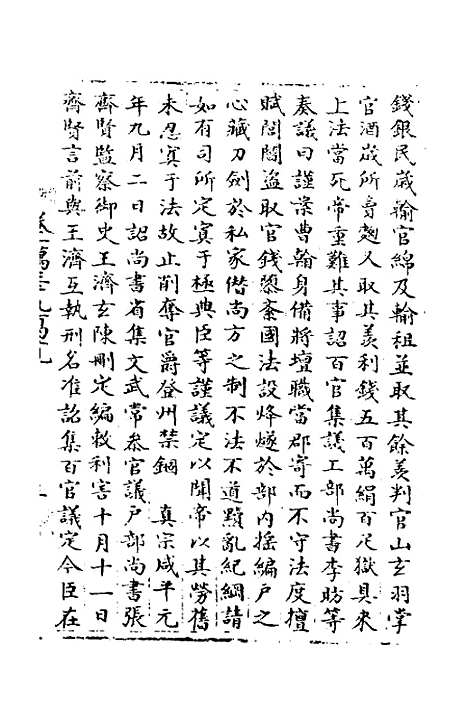 錢銀民歲輸官綿及輸祖並取其餘羨判官山玄羽掌
官酒歲所鬻麴又取其羨利錢五百萬絹百疋獄具來
上法當死帝重難其事詔百官集議工部尚書李昉等
奏議曰謹案曹翰身備將壇職當郡寄而不守法度擅
賦閭閻盜取官錢隳紊國法設烽燧於部內搖編戶之
心藏刀劍於私家僭尚方之制不法不道黷亂紀綱請
如有司所定寘于極典臣等謹議定以聞帝以其勞舊
未忍寘于法故止削奪官爵登州禁錮 真宗咸平元
年九月二日詔尚書省集文武常叅官議戶部尚書張
齊賢監察御史王濟玄陳刪定編敕利害十月十一日
齊賢言前與王濟互執刑名准詔集百官議定今臣在